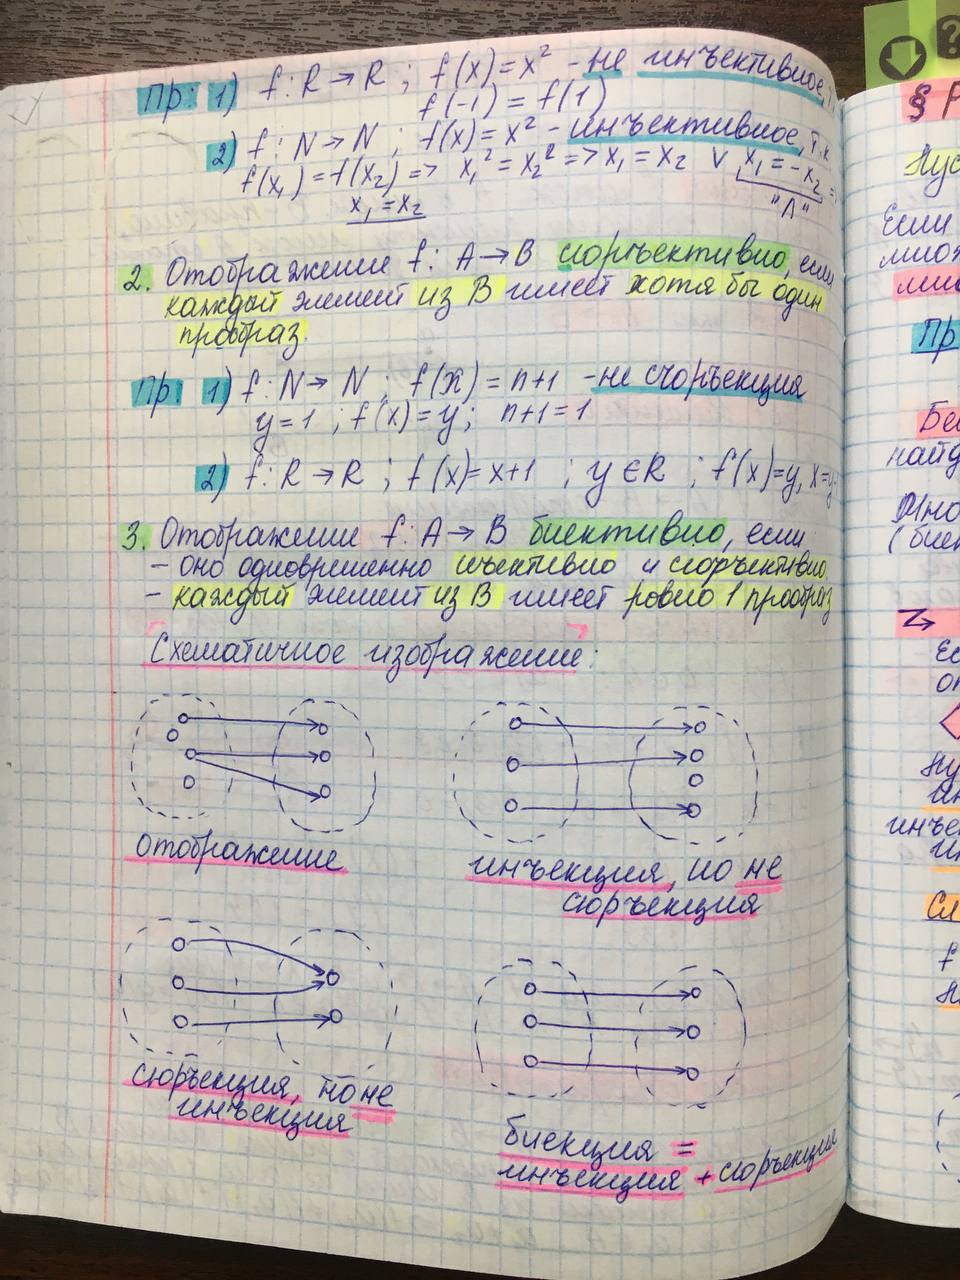 Пр: 1) f: R → R ; f(x) = x² - не инъективное,
f(-1) = f(1)
2) f: N → N ; f(x) = x² - инъективное, т.к
f(x₁) = f(x₂) => x₁² = x₂² => x₁ = x₂ ∨ x₁ = -x₂ =
x₁ = x₂
"Л"
2. Отображение f: A → B сюръективно, если
каждый элемент из B имеет хотя бы один
прообраз.
Пр 1) f: N → N ; f(x) = n+1 - не сюръекция
y = 1 ; f(x) = y ; n+1 = 1
2) f: R → R ; f(x) = x+1 ; y ∈ R ; f(x)=y, x=y-
3. Отображение f: A → B биективно, если
- оно одновременно инъективно и сюръективно
- каждый элемент из B имеет ровно 1 прообраз
Схематичное изображение:
отображение
инъекция, но не
сюръекция
сюръекция, но не
инъекция
биекция =
инъекция + сюръекция
§ Р
Пус
Если
мнох
Пр
Бес
найд
Мно
(биек
Ес
оп
Пу
ин
инъе
Сл
f